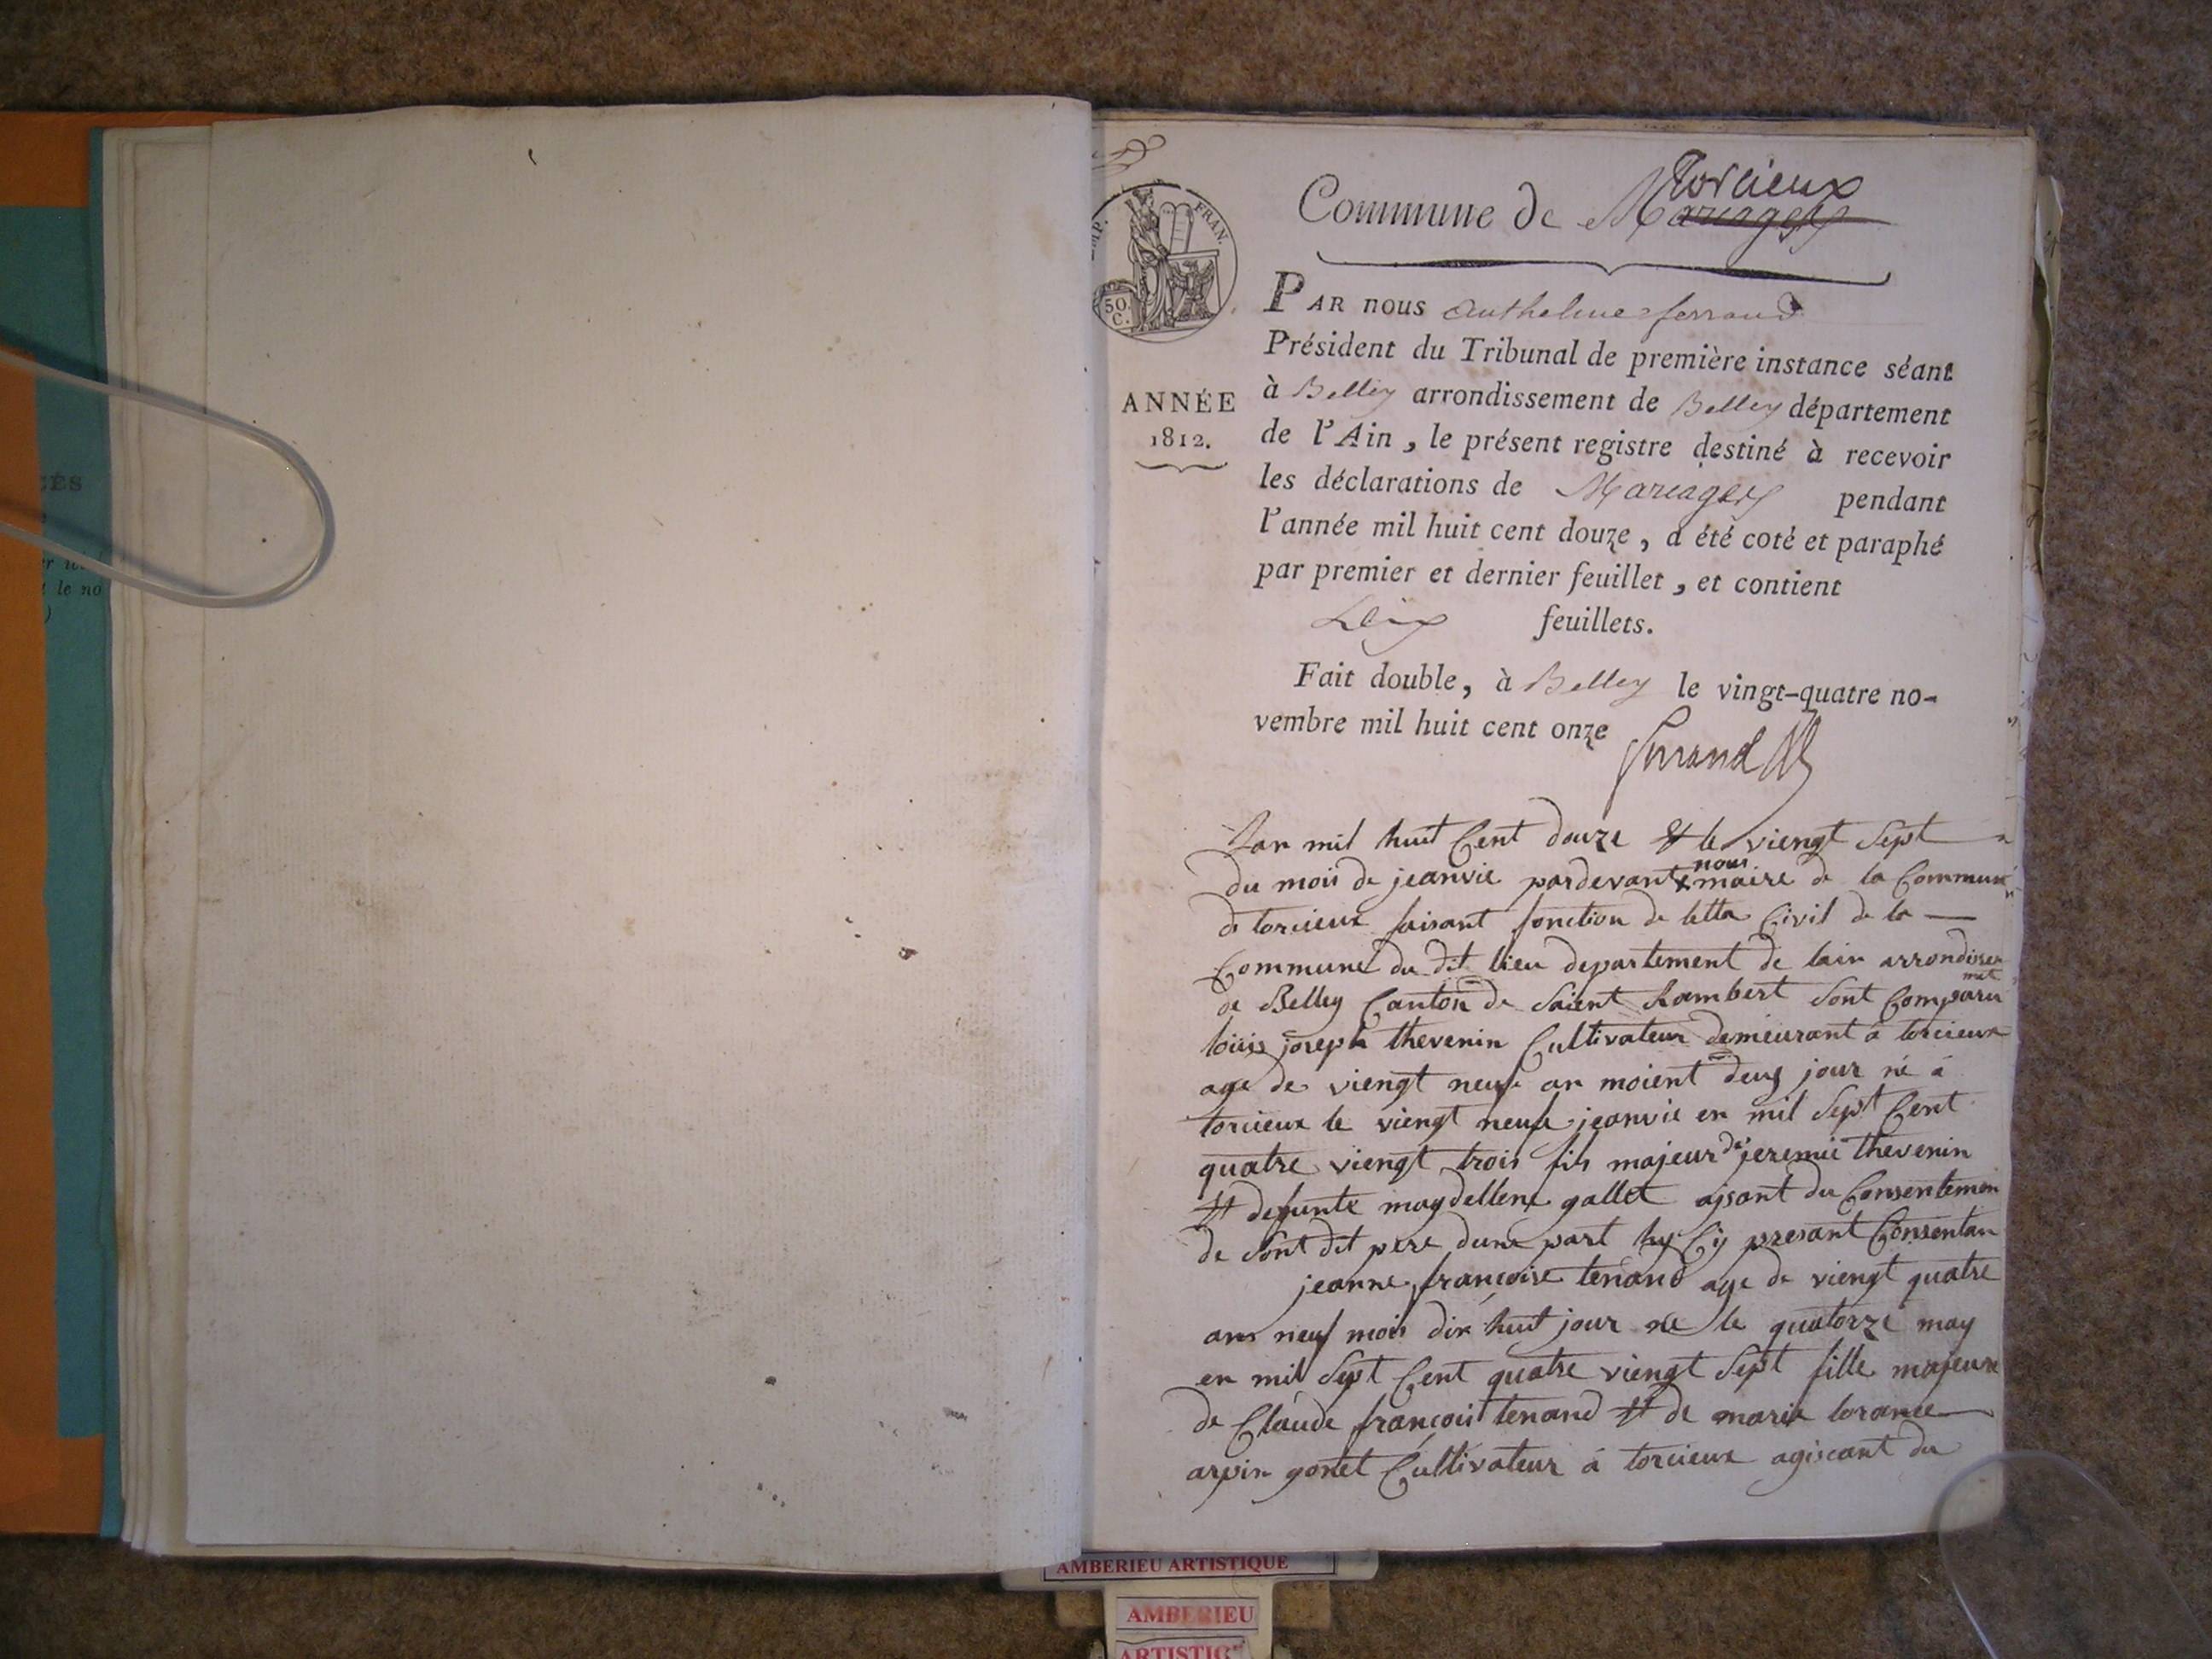 Commune de Mariages Torcieux
IMP. FRAN.
50 C.
ANNÉE
1812.
PAR nous Anthelme ferrand
Président du Tribunal de première instance séant
à Belley arrondissement de Belley département
de l'Ain, le présent registre destiné à recevoir
les déclarations de Mariages pendant
l'année mil huit cent douze, a été coté et paraphé
par premier et dernier feuillet, et contient
feuillets.
Fait double, à Belley le vingt-quatre no-
vembre mil huit cent onze
ferrand
Lan mil huit Cent douze et le viengt Sept
du mois de jeanvie pardevant nous maire de la Commune
de torcieux faisant fonction de letta Civil de la
Commune du dit lieu departement de lain arrondisemet
de Belley Canton de Saient Rambert Sont Comparu
louis joseph thevenin Cultivateur demeurant à torcieux
age de viengt neuf an moient deus jour né à
torcieux le viengt neufe jeanvie en mil Sept Cent
quatre viengt trois fils majeur de jeremie thevenin
et defunte magdellene gallet ajsant du Consentemen
de Sont dit pere dune part Cy presant Consentan
jeanne françoise tenand age de viengt quatre
ans neuf mois dix huit jour né le quatorze may
en mil Sept Cent quatre viengt Sept fille majeure
de Claude françois tenand et de marie lorance
arpin gonet Cultivateur à torcieux agiscant du
CÉS
le no
)
AMBERIEU ARTISTIQUE
AMBERIEU